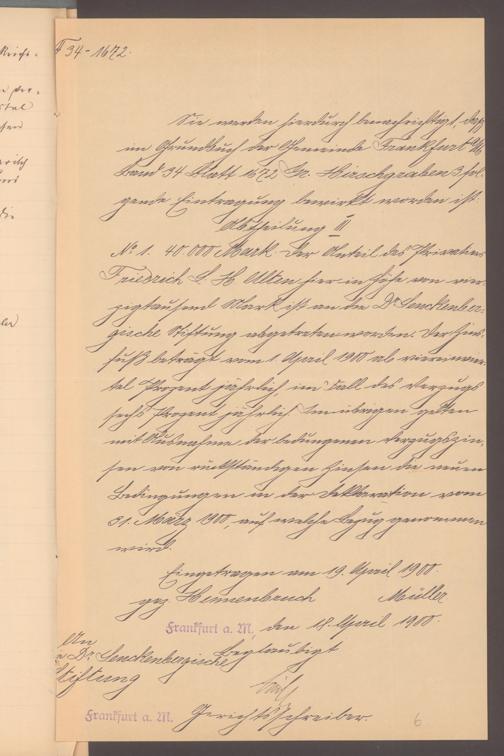 F 34-1672.
Sie werden hierdurch benachrichtigt, daß
im Grundbuch der Gemeinde Frankfurt a/M
Band 34 Blatt 1672 Gr. Hirschgraben 3 fol-
gende Eintragung bewirkt worden ist.
Abtheilung III
No 1. 40 000 Mark. Der Anteil des Privatiers
Friedrich L. H. Alten hier in Höhe von vier-
zigtausend Mark ist an die Dr. Senckenber-
gische Stiftung abgetreten worden. Der Zins-
fuß beträgt vom 1. April 1900 ab viereinvier-
tel Prozent jährlich, im Fall des Verzugs
sechs Prozent jährlich. Im übrigen gelten
mit Ausnahme der bedungenen Verzugszin-
sen von rückständigen Zinsen die neuen
Bedingungen in der Deklaration vom
31. März 1900, auf welche Bezug genommen
wird.
Eingetragen am 19. April 1900.
gez Hennenbruch Müller
Frankfurt a. M., den 19. April 1900.
An
Dr. Senckenbergische
Stiftung
Beglaubigt
Frankfurt a. M.
Gerichtsschreiber.
6